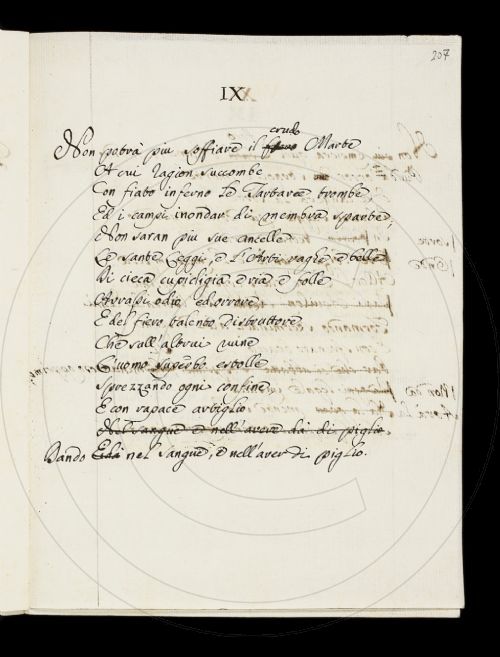 207
IX
crudo
Non potrà piu soffiare il fiero Marte
A cui ragion succombe
Con fiato inferno le Tartaree trombe,
Ed i campi inondar di membra sparte;
Non saran più sue ancelle
Le sante Leggi, e l'Arti vaghe e belle
Di cieca cupidigia e ria e folle
Avrassi odio, ed orrore
E del fiero talento distruttore
Che sull'altrui ruine
L'uomo superbo estolle
Sprezzando ogni confine
E con rapace artiglio
Nel sangue e nell'avere dà di piglio.
Dando nel sangue, e nell'aver di piglio.